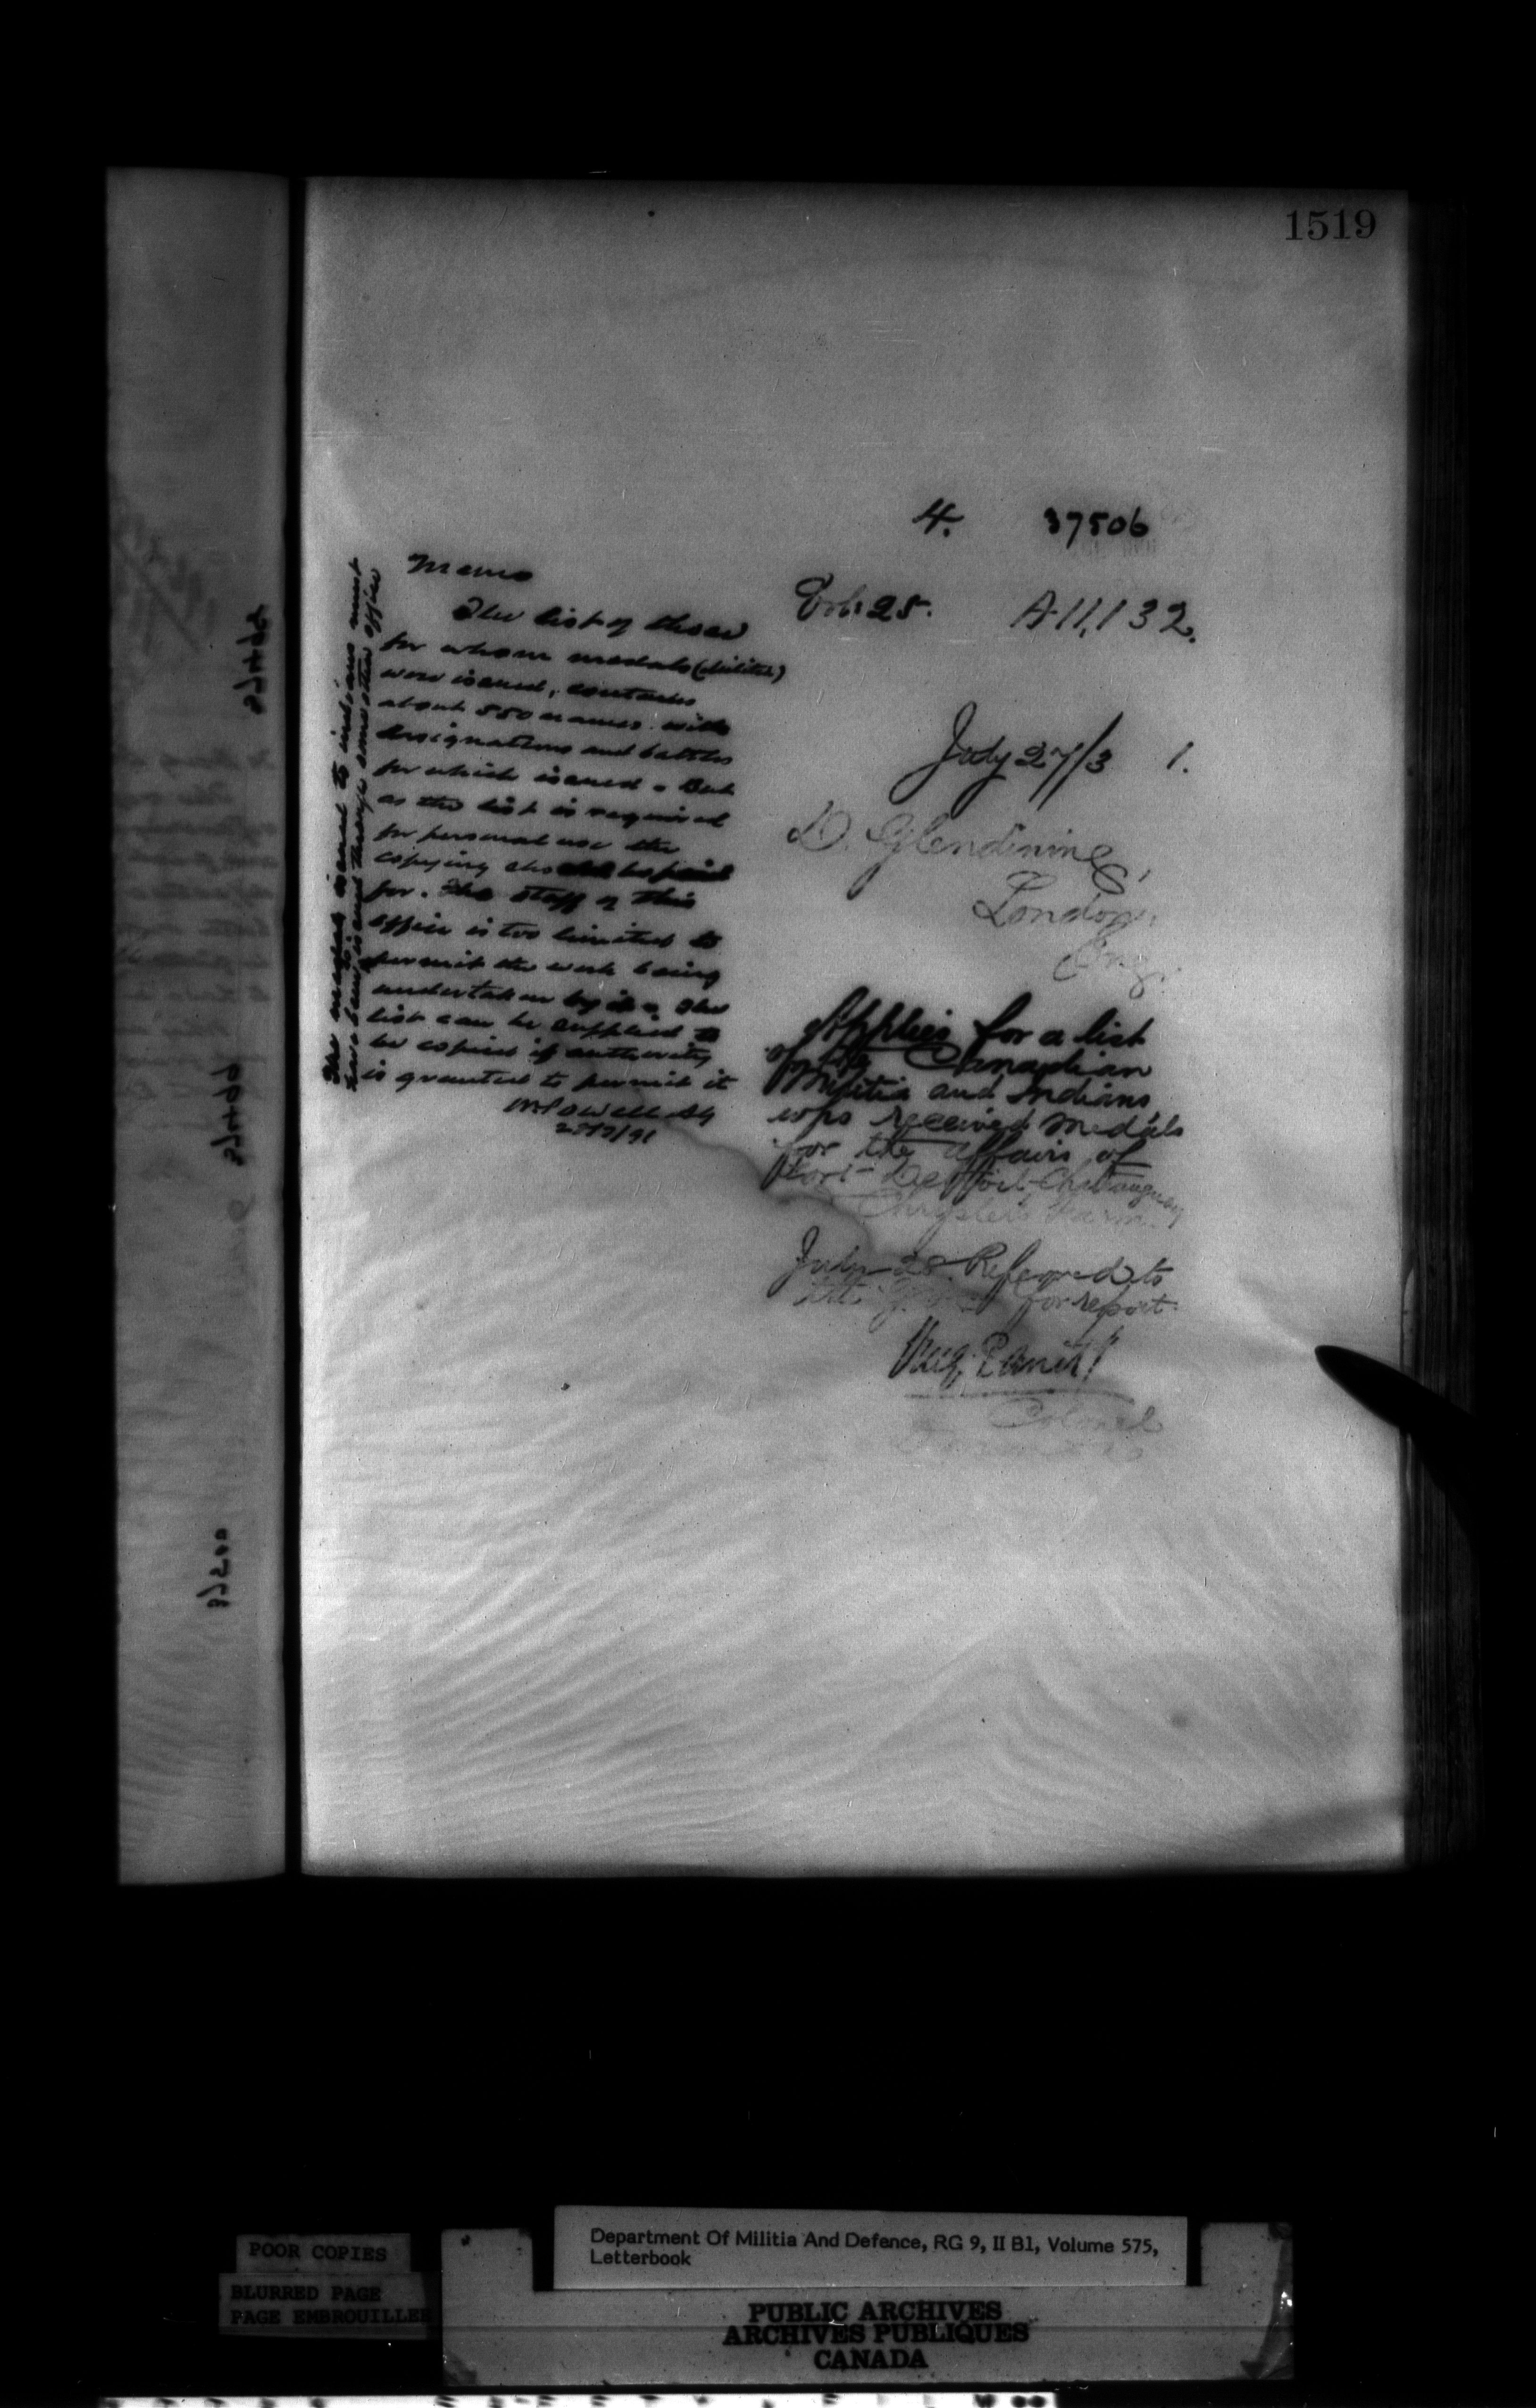 1519
4. 37506
25. A 11,132.
July 27/3 1.
D. Glendining,
London,
Eng.
Applies for a list
of the Canadian
Militia and Indians
who received medals
for the affairs of
Fort Detroit, Chateauguay
Chrysler's Farm.
July 28 Referred to
the for report.
Panet
Colonel
Memo
The list of those
for whom medals (militia)
were issued, contains
about 550 names with
designations and battles
for which issued. But
as the list is required
for personal use the
copying
for. The staff of this
office is too limited to
permit the work being
undertaken by it. The
list can be supplied to
be copied if authority
is granted to permit it
WPowell AG
The medals issued to indians must
have been issued through some other office
Department Of Militia And Defence, RG 9, II B1, Volume 575,
Letterbook
POOR COPIES
BLURRED PAGE
PAGE EMBROUILLEE
PUBLIC ARCHIVES
ARCHIVES PUBLIQUES
CANADA